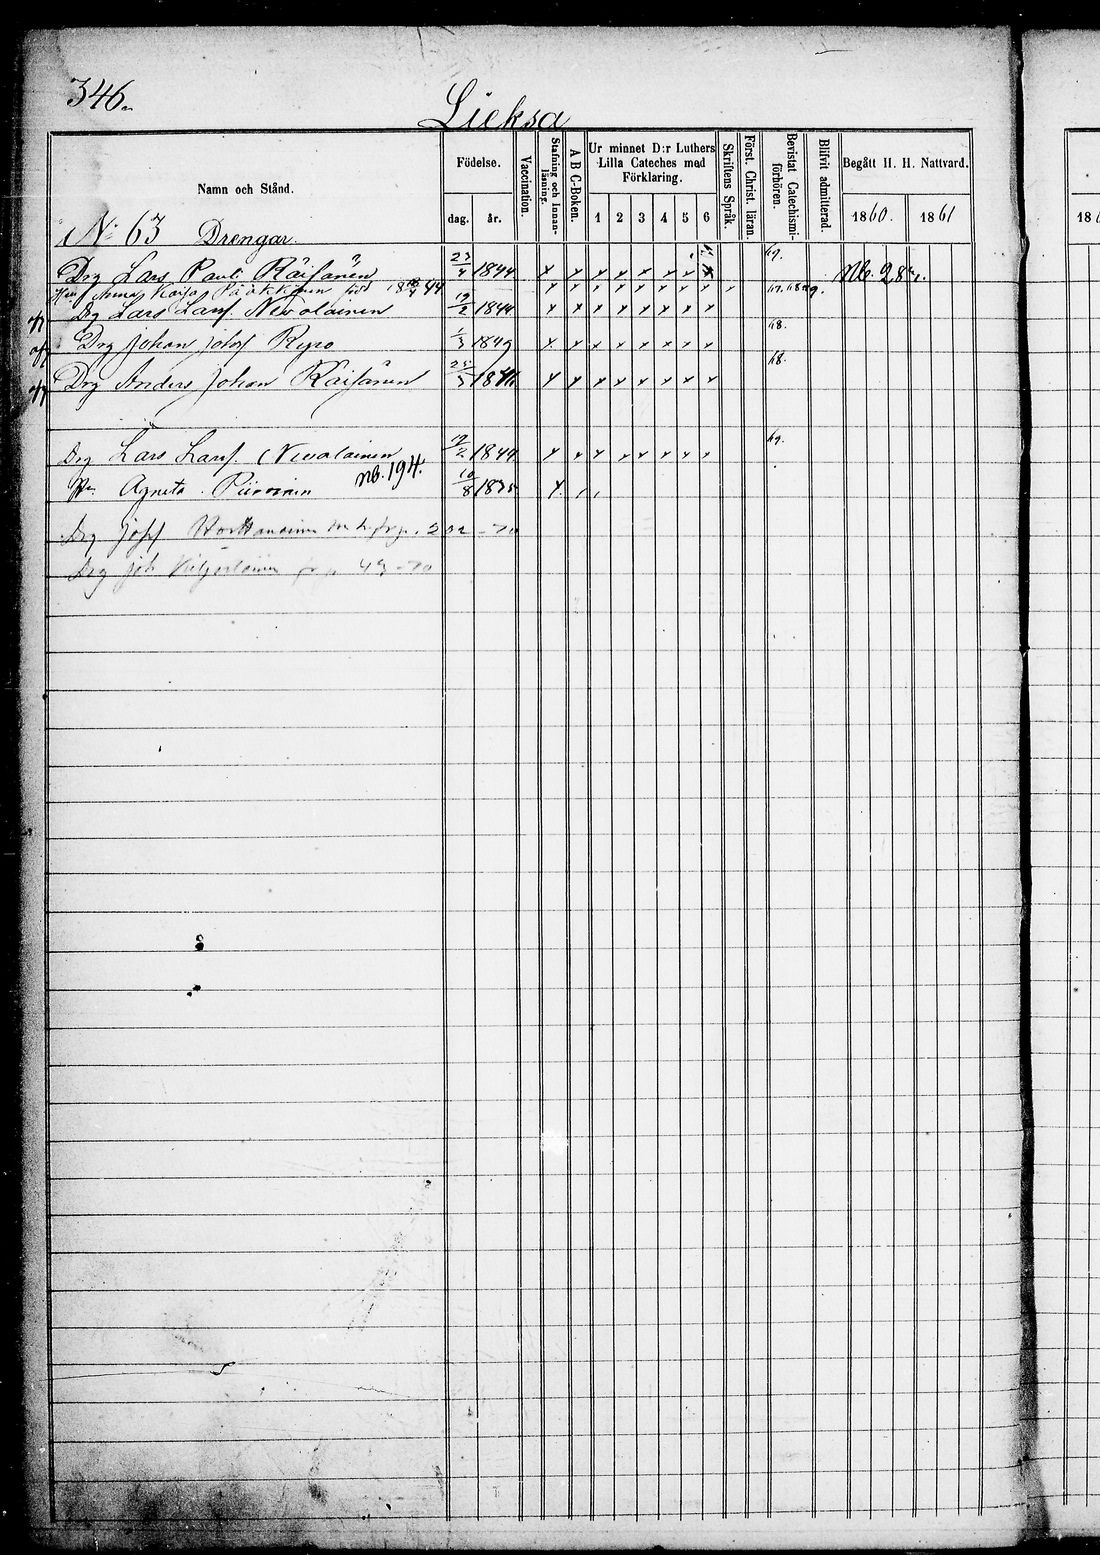 346
Lieksa
Namn och Stånd.
Födelse.
dag.
år.
Vaccination.
Stafning och Innanläsning.
A B C-Boken.
Ur minnet D:r Luthers Lilla Cateches med Förklaring.
1 2 3 4 5 6
Skriftens Språk.
Först. Christ. läran.
Bevistat Catechismiförhören.
Blifvit admitterad.
Begått H. H. Nattvard.
1860. 1861
No 63 Drengar.
Drg Lars Pauli Räisänen 23/4 1844 x x x x x x x x 69.
Anna Kaisa Pääkkönen
Drg Lars Larsf. Nevalainen 19/2 1844 x x x x x x x x
Drg Johan Josef Rypo 1/3 1849 x x x x x x x x 68.
Drg Anders Johan Räisänen 25/3 x x x x x x x x 68.
Drg Lars Larsf. Nevalainen 19/2 1844 x x x x x x x x 69.
Agneta Piiroinen nb. 194. 10/8 1835 x
Drg Josef 202-70
Drg Joh 49-70